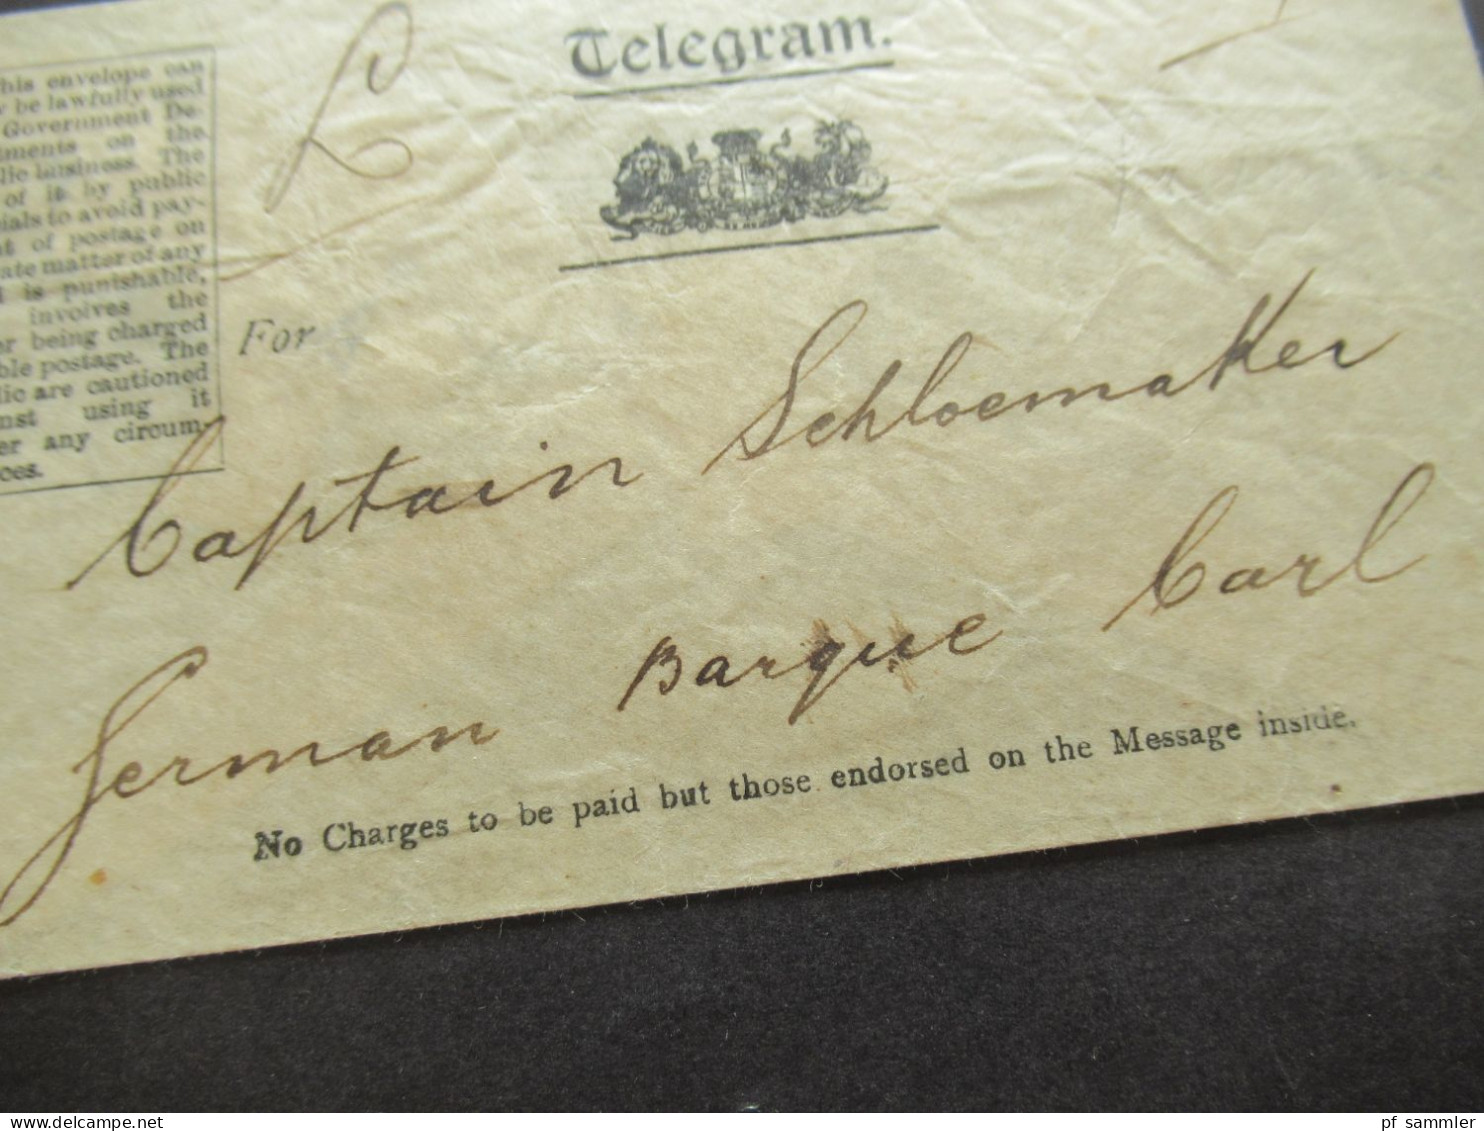 Telegram.
his envelope can
be lawfully used
Government De-
tments on the
lic business. The
of it by public
ials to avoid pay-
t of postage on
ate matter of any
is punishable,
involves the
or being charged
ble postage. The
lic are cautioned
nst using it
er any circum-
ces.
L
For
Captain Schloemaker
German Barque Carl
No Charges to be paid but those endorsed on the Message inside.
pf_sammler